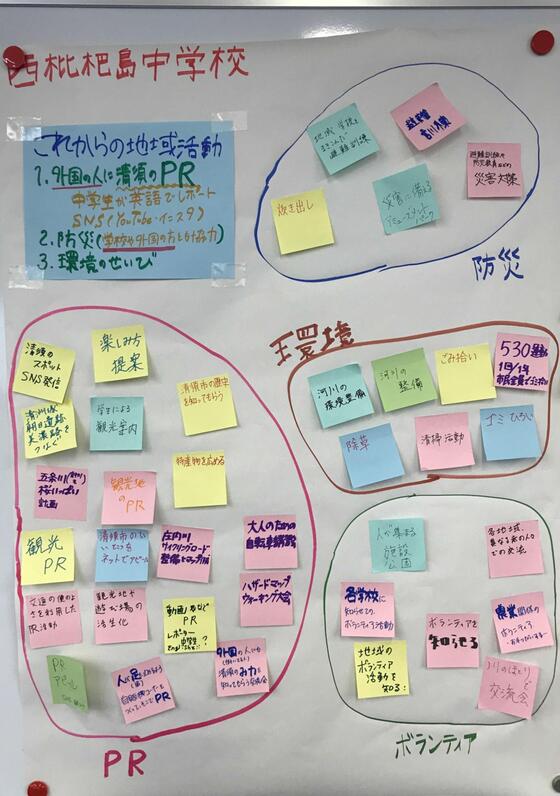 西枇杷島中学校
これからの地域活動
1.外国の人に清須のPR
中学生が英語でレポート
SNS(YouTube・インスタ)
2.防災(学校や外国の方との協力)
3.環境のせいび
地域、学校を
まきこんだ
避難訓練
災害対策
炊き出し
災害に備える
防災
清須の
スポット
SNS発信
楽しみ方
提案
清須市の歴史
を知ってもらう
清洲城
朝日遺跡
美濃路を
つなぐ
学生による
観光案内
五条川
桜いっぱい
計画
観光地
のPR
特産物を広める
観光
PR
清須市のいい
ところを
ネットでアピール
庄内川
サイクリングロード
整備とマップ作成
大人のための
自転車講習
交通の便のよ
さを利用した
観光地や
遊び場の
活性化
動画などで
PR
レポーター
中学生
English!!?
ハザードマップ
ウォーキング大会
PR
アピール
PR
外国の人にも
清須のみ力を
知ってもらう
PR
環境
河川の
環境整備
河川の
整備
ごみ拾い
530運動
1回/1年
市民全員でゴミ拾い
除草
清掃活動
ゴミひろい
人が集まる
施設
公園
各地域、
異なる年の人々
での交流
各学校に
知らせての
ボランティア活動
ボランティアを
知らせる
農業関係の
ボランティア
地域の
ボランティア
活動を
知る!
川のほとり
で
交流会
ボランティア